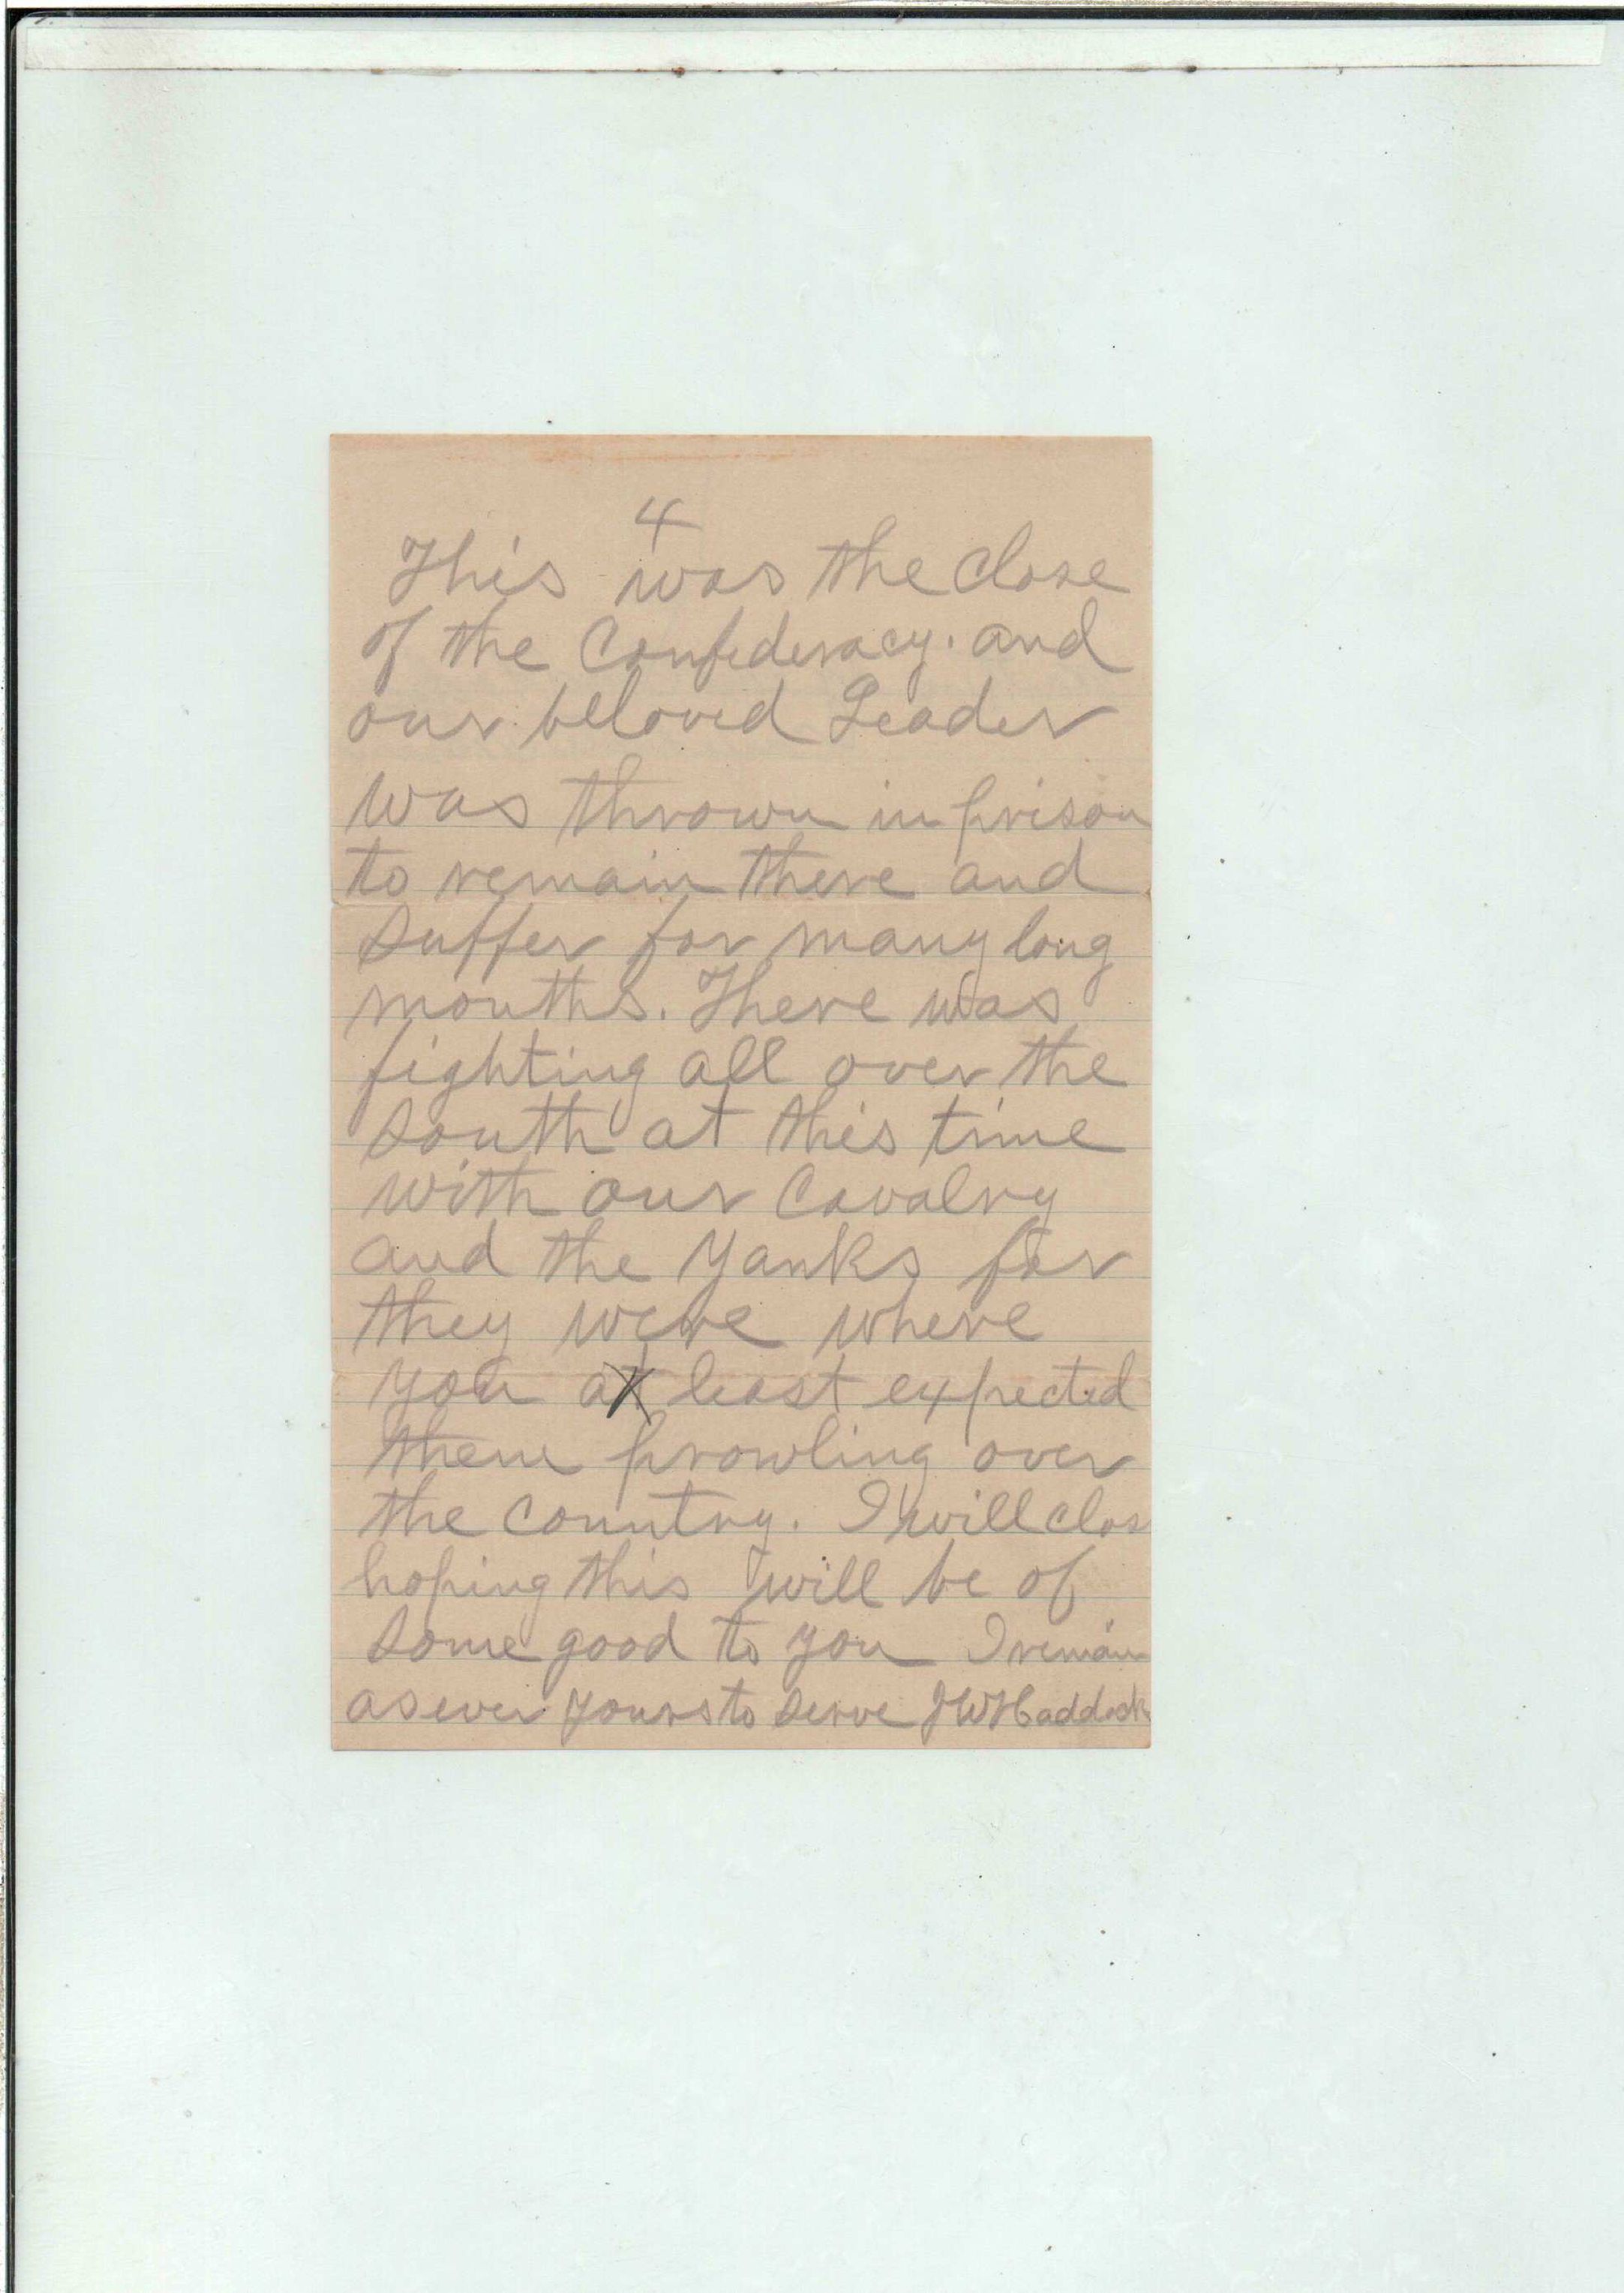 4
This was the close
of the Confederacy. and
our beloved Leader
was thrown in prison
to remain there and
suffer for many long
months. There was
fighting all over the
South at this time
with our Cavalry
and the Yanks for
they were where
you at least expected
them prowling over
the country. I will clos
hoping this will be of
some good to you I remain
as ever yours to serve JW Haddock